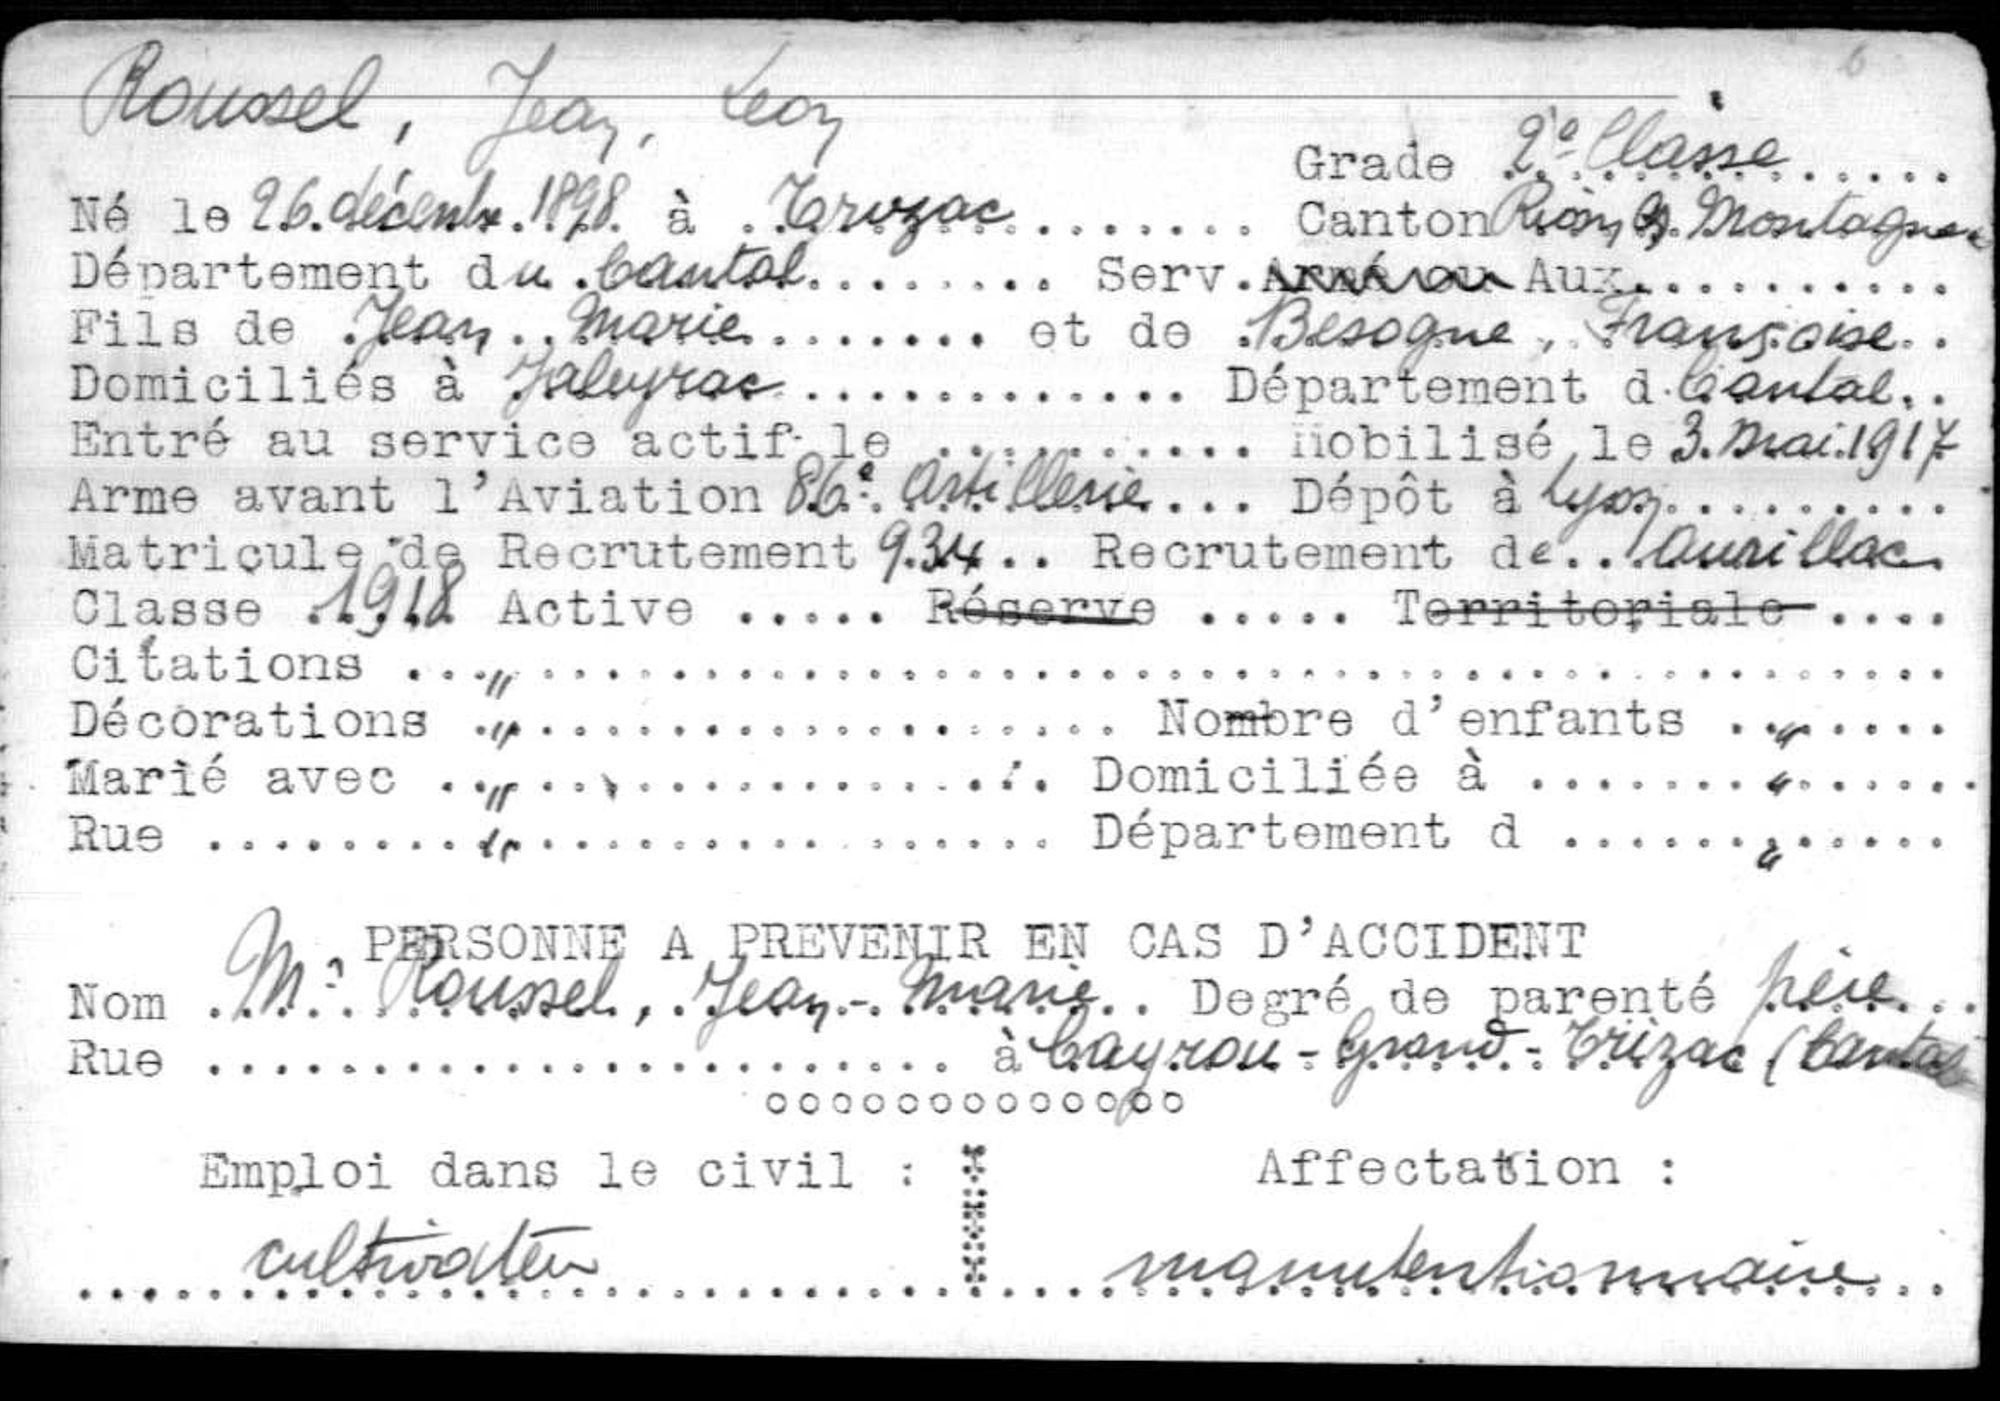 6
Roussel, Jean, Leon
Grade 2e Classe
Né le 26 décembre 1898 à Trizac Canton Riom es Montagnes
Département du Cantal Serv. Armé ou Aux.
Fils de Jean Marie et de Besogne, Françoise
Domiciliés à Jaleyrac Département d Cantal
Entré au service actif le .......... Mobilisé le 3 Mai 1917
Arme avant l'Aviation 86e Artillerie Dépôt à Lyon
Matricule de Recrutement 934 Recrutement de Aurillac
Classe 1918 Active ..... Réserve ..... Territoriale ....
Citations "
Décorations " Nombre d'enfants "
Marié avec " Domiciliée à "
Rue " Département d "
PERSONNE A PREVENIR EN CAS D'ACCIDENT
Nom Mr Roussel, Jean-Marie Degré de parenté père
Rue .......... à Cayrou-Grand-Trizac (Cantal
ooooooooooooo
Emploi dans le civil : Affectation :
cultivateur manutentionnaire